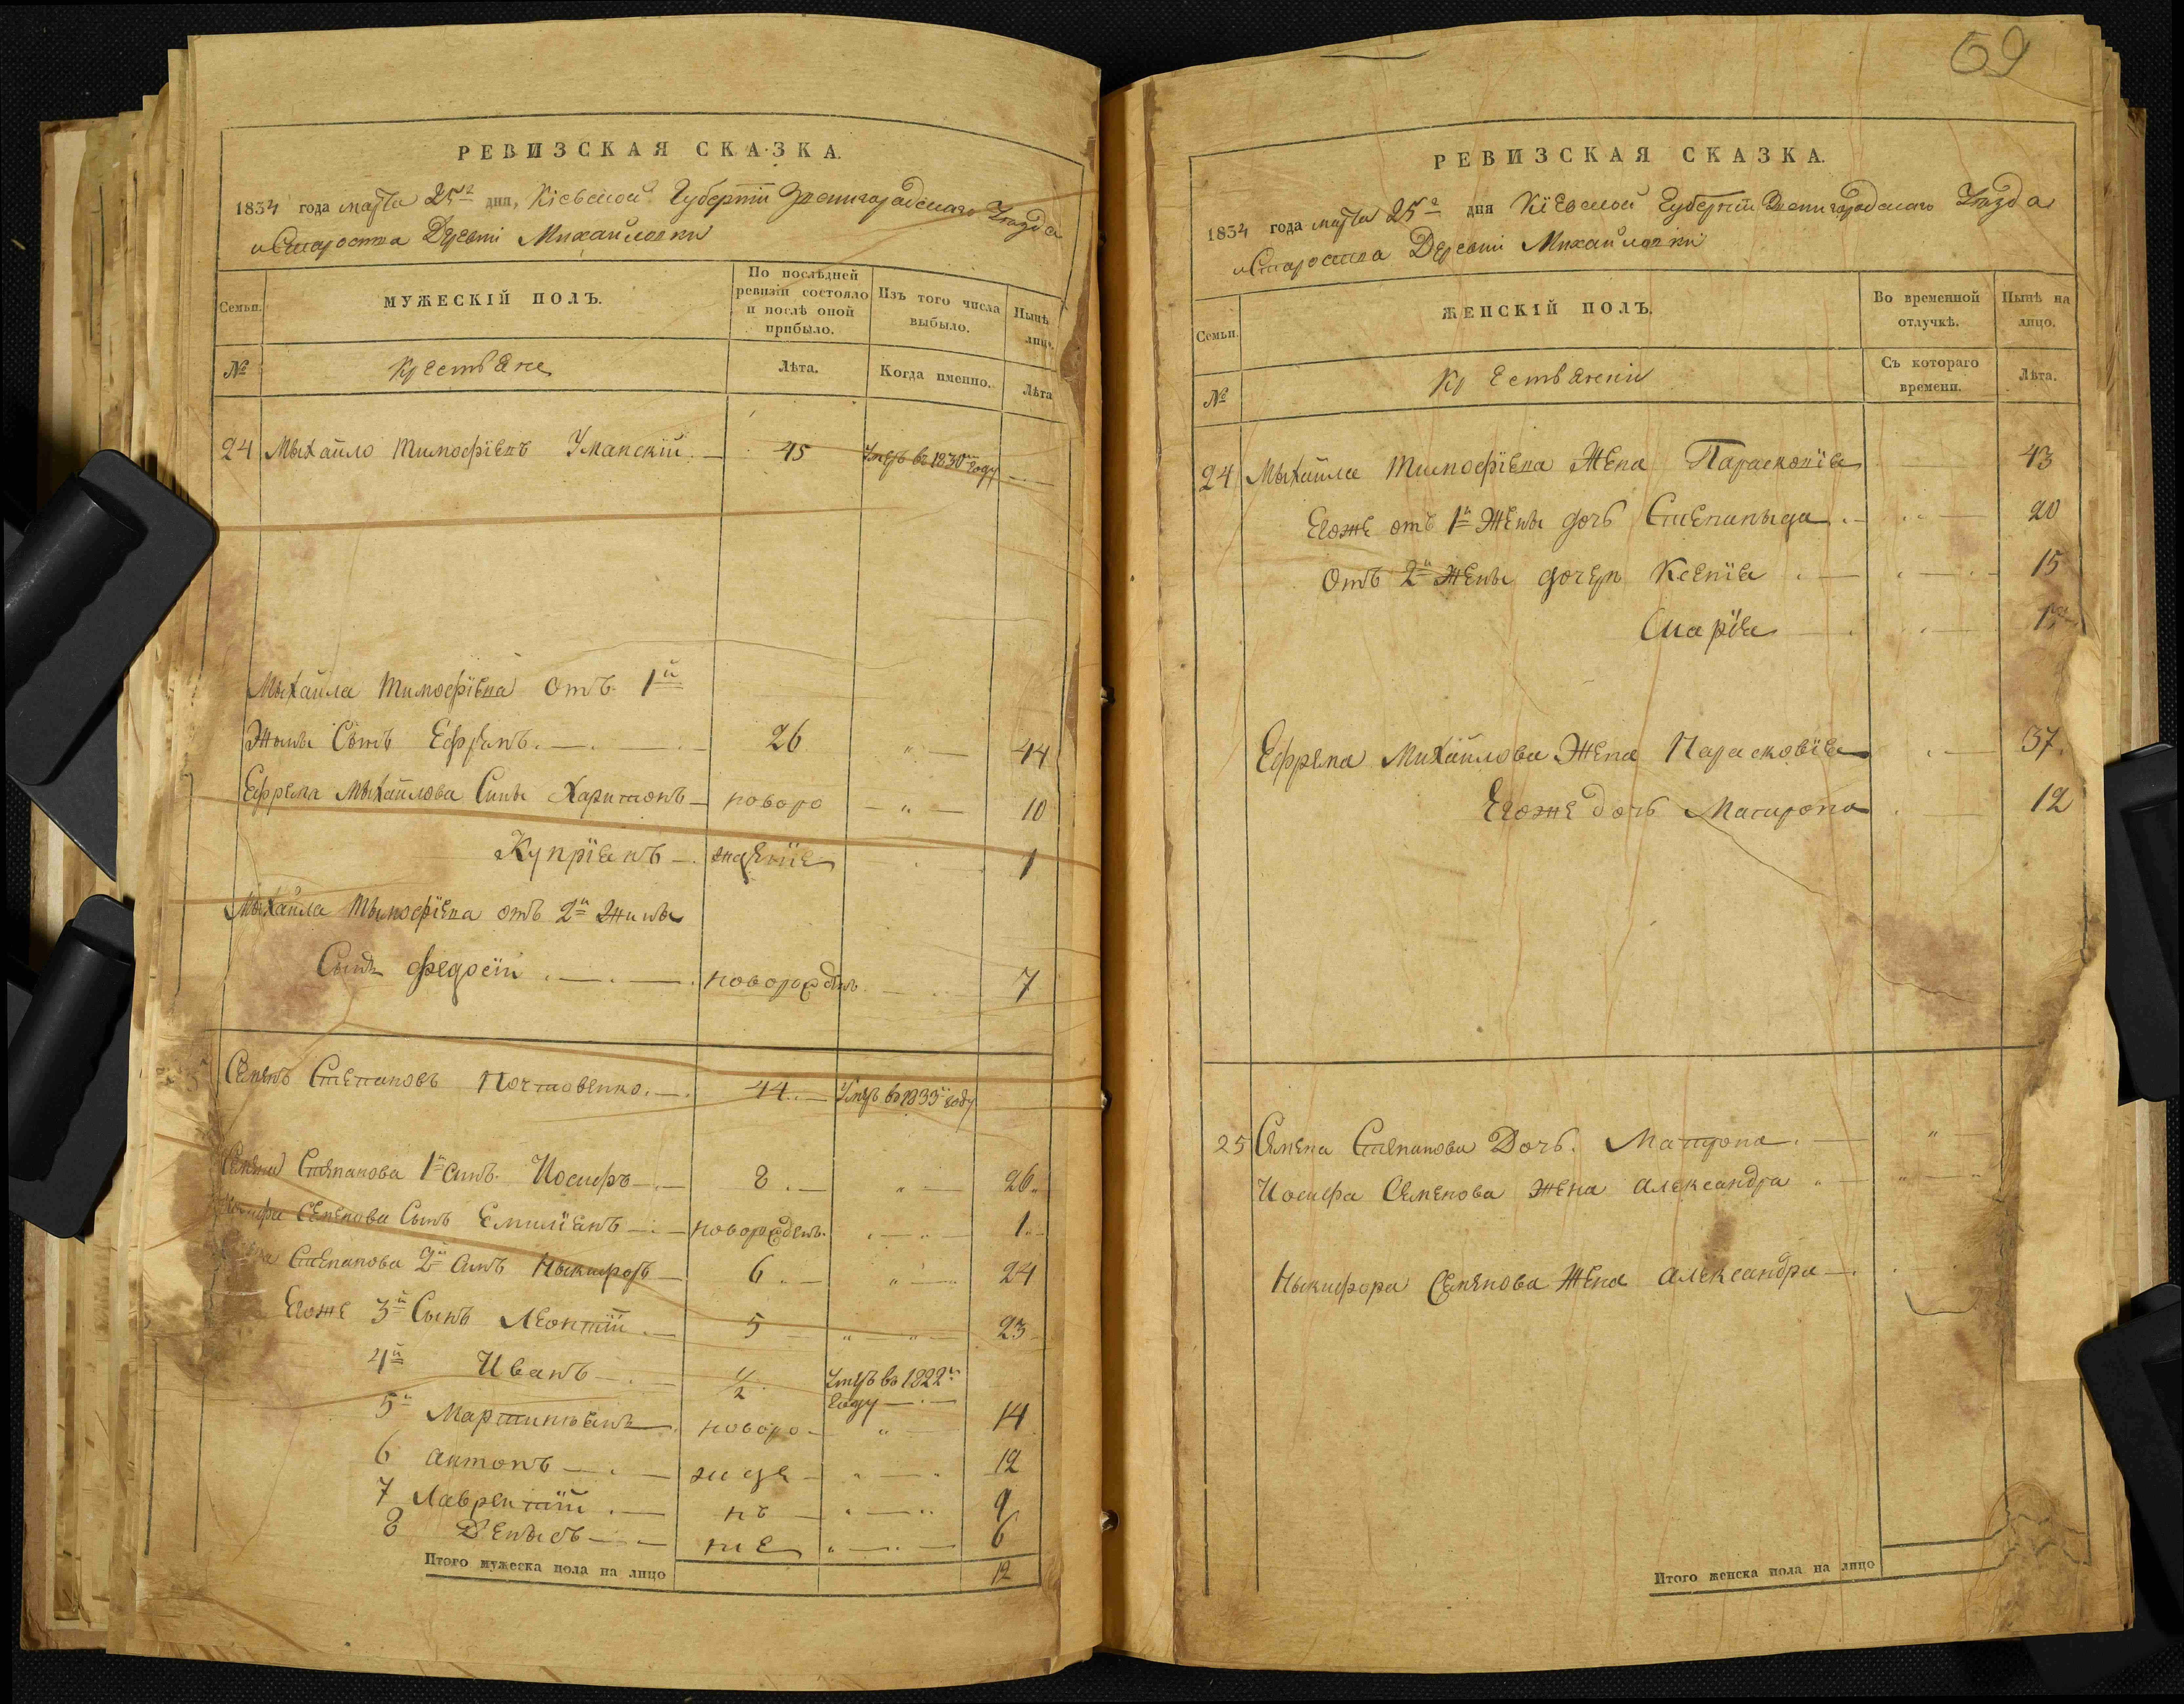 РЕВИЗСКАЯ СКАЗКА.
1834 года марта 25го дня, Кіевской Губерніи Звенигородскаго Уезда
Староства Деревни Михайловки
Семьи.
МУЖЕСКІЙ ПОЛЪ.
По послѣдней ревизіи состояло и послѣ оной прибыло.
Изъ того числа выбыло.
Нынѣ лицо.
№
Крестьяне
Лѣта.
Когда именно.
Лѣта
24 Михайло Тимофіевъ Уманскій 45 Умеръ въ 1830м году
Михайла Тимофіева отъ 1й
Жены Сынъ Ефремъ 26 44
Ефрема Михайлова Сины Харитонъ новоро 10
Купріянъ жденіе 1
Михайла Тимофіева отъ 2й Жины
Сынъ Федосій новорожденъ 7
Семенъ Степановъ Почтовенко 44 Умеръ въ 1833 году
Семена Степанова 1й синъ Иосифъ 8 26
Иосифа Семенова Сынъ Емиліянъ новорожденъ 1
Степанова 2й Синъ Никифоръ 6 24
Егоже 3й Сынъ Леонтій 5 23
4й Иванъ 1/2 Умеръ въ 1822м году
5й Мартиніянъ новоро 14
6 Антонъ жде 12
7 Лаврентій нъ 9
8 Денысъ ніе 6
Итого мужеска пола на лицо 12
69
РЕВИЗСКАЯ СКАЗКА.
1834 года марта 25го дня Кіевской Губерніи Звенигородскаго Уезда
Староства Деревни Михайловки
Семьи.
ЖЕНСКІЙ ПОЛЪ.
Во временной отлучкѣ.
Нынѣ на лицо.
№
Крестьянки
Съ котораго времени.
Лѣта.
24 Михайла Тимофіева Жена Парасковія 43
Егоже отъ 1й Жены дочь Степаныда 20
Отъ 2й Жены дочери Ксенія 15
Марія
Ефрема Михайлова Жена Парасковія 37
Егоже дочь Матрона 12
25 Семена Степанова Дочь Матрона
Иосифа Семенова жена Александра
Никифора Семенова Жена Александра
Итого женска пола на лицо